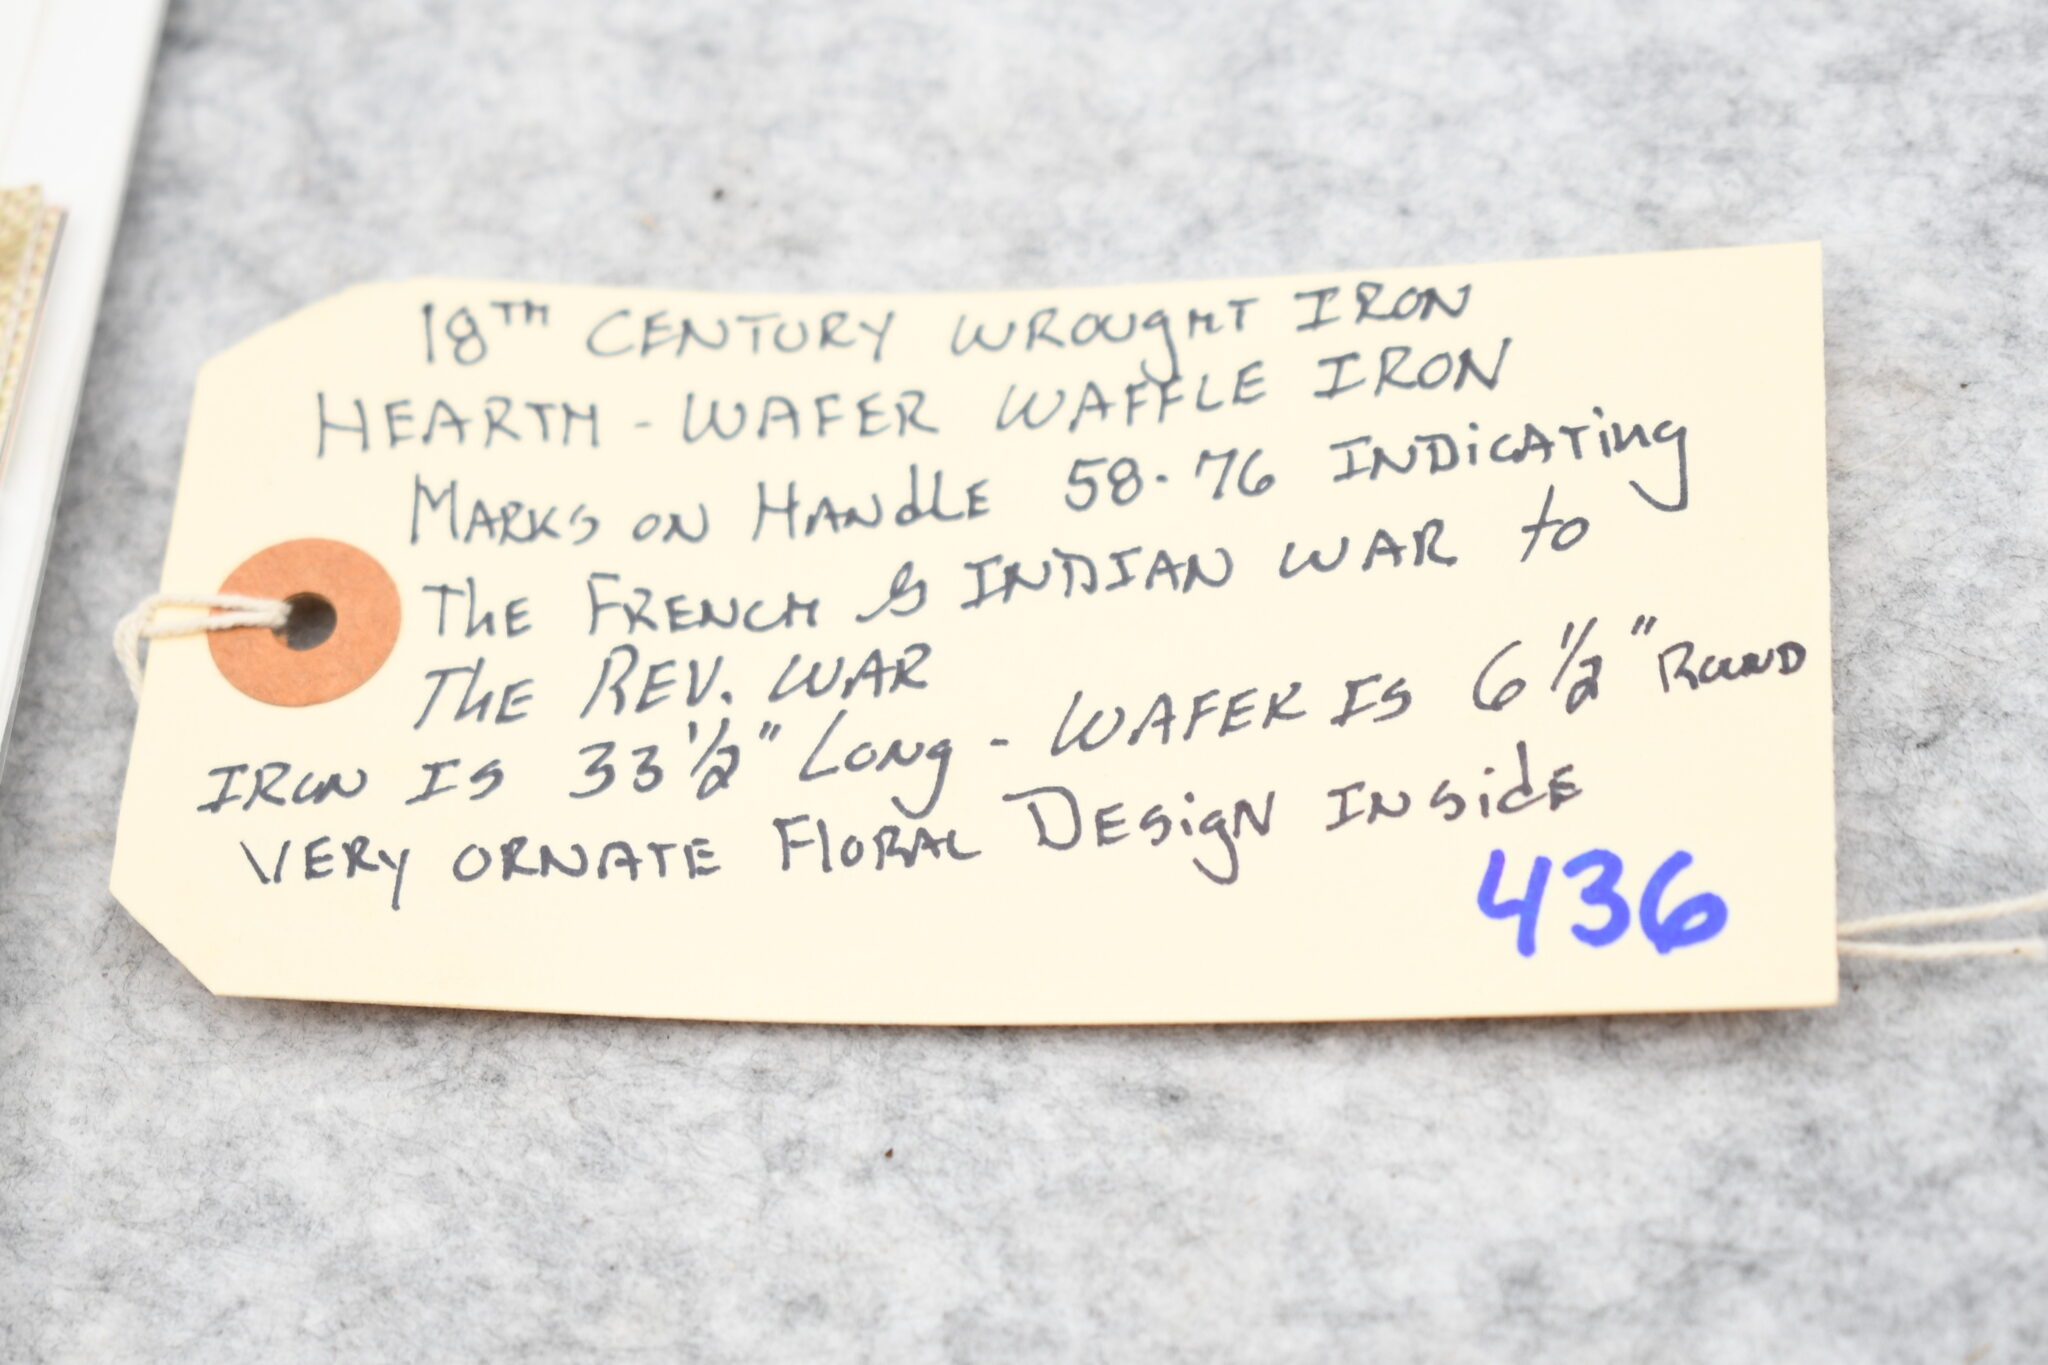 18TH CENTURY WROUgHT IRON
HEARTH - WAFER WAFFLE IRON
MARKS ON HANdLE 58-76 INDiCATiNg
THE FRENCH & INDIAN WAR to
THE REV. WAR
IRON IS 33 1/2" LONg - WAFER IS 6 1/2" ROUND
VERY ORNATE FlORAL DESigN INSidE
436